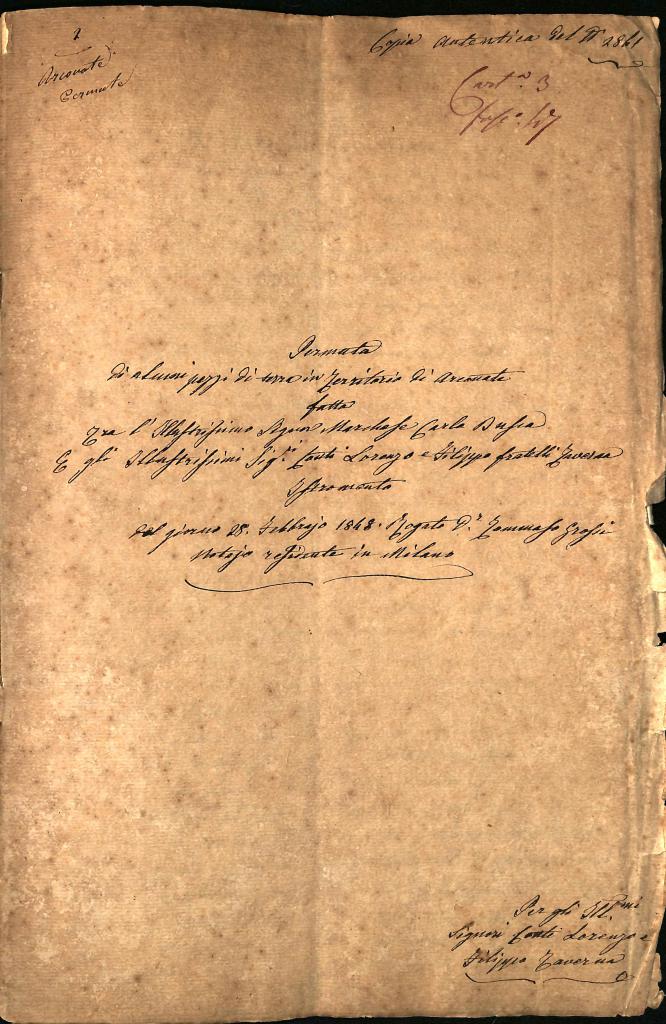 1
Arconate
Permute
Copia autentica del N° 2861
Cart.a 3
fasc.o 47
Permuta
di alcuni pezzi di terra in Territorio di Arconate
fatta
Tra l'Illustrissimo Signor Marchese Carlo Busca
E gli Illustrissimi Sig.i Conti Lorenzo e Filippo fratelli Taverna
Istromento
del giorno 28. Febbrajo 1848. Rogato D.r Tommaso Grossi
Notajo residente in Milano
Per gli Ill.mi
Signori Conti Lorenzo e
Filippo Taverna